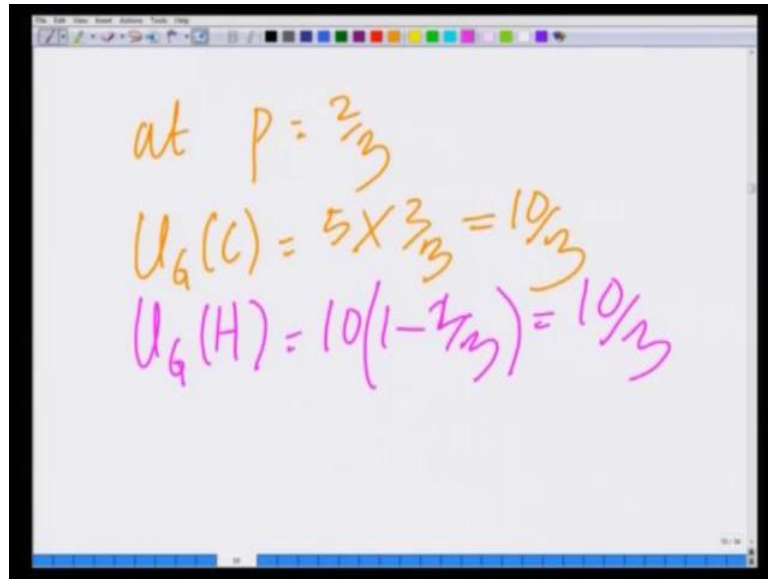 File Edit View Insert Actions Tools Help
at p = 2/3
U_G(C) = 5 X 2/3 = 10/3
U_G(H) = 10(1 - 2/3) = 10/3